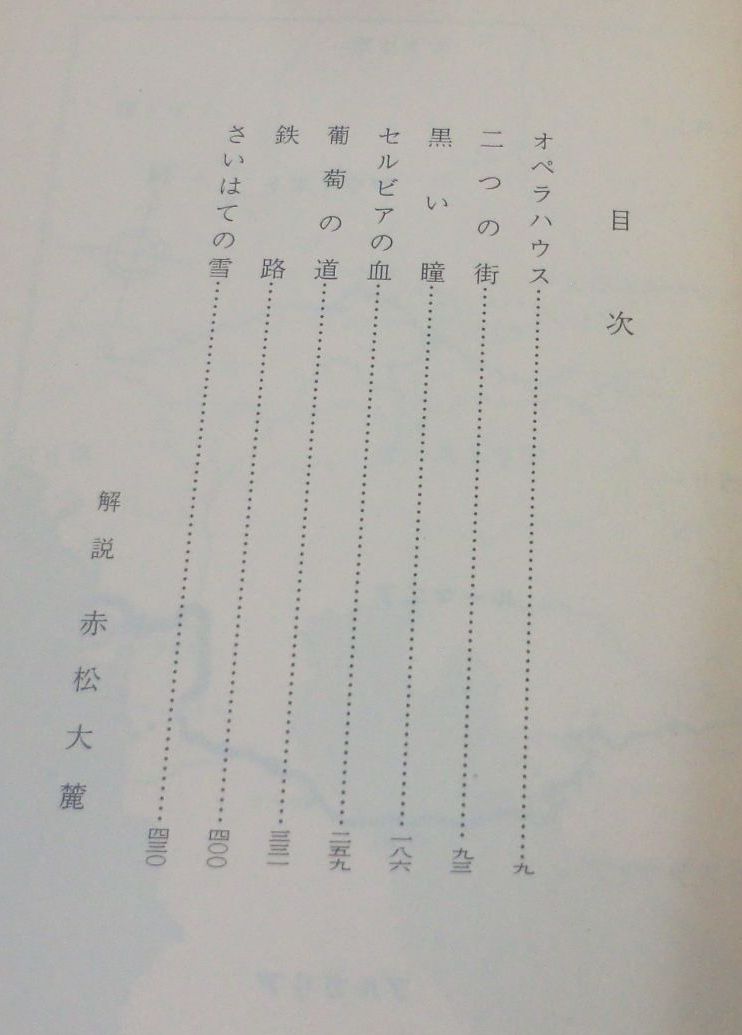 目次
オペラハウス……九
二つの街……九三
黒い瞳……一八六
セルビアの血……二五九
葡萄の道……三三一
鉄路……四〇〇
さいはての雪……四三〇
解説 赤松大麓